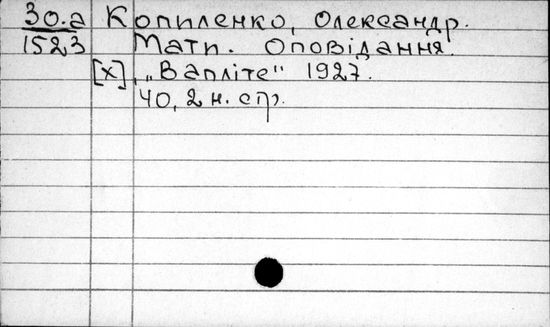 30.а Копиленко, Олександр.
1523 Мати. Оповідання.
[х], „Вапліте" 1927.
40, 2 н. стр.